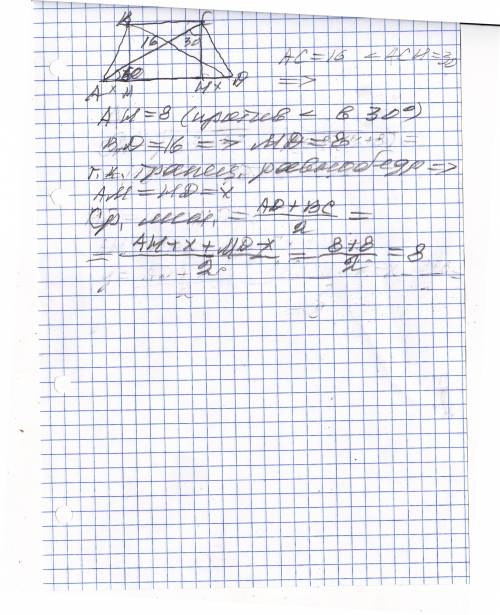 B C
16 30
60
A x M H x D
AC=16 <ACH=30
=>
AH=8 (против < в 30°)
BD=16 => MD=8
т.к. трапец. равнобедр =>
AM=HD=x
Ср. лин. = AD+BC / 2 =
= AM+x+MD-x / 2 = 8+8 / 2 = 8